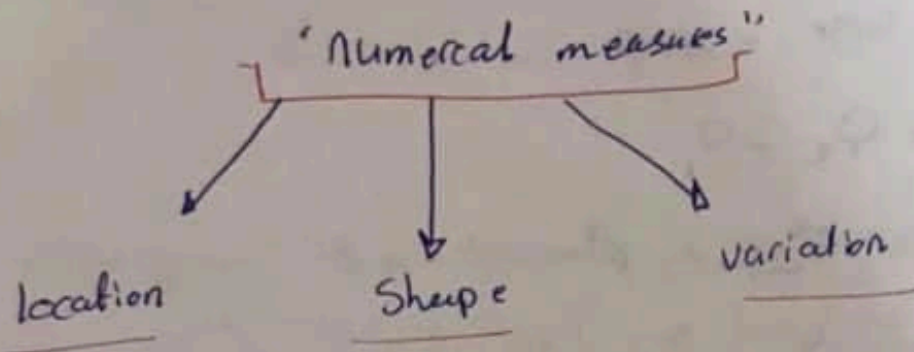 "Numercal measures"
location Shape variation